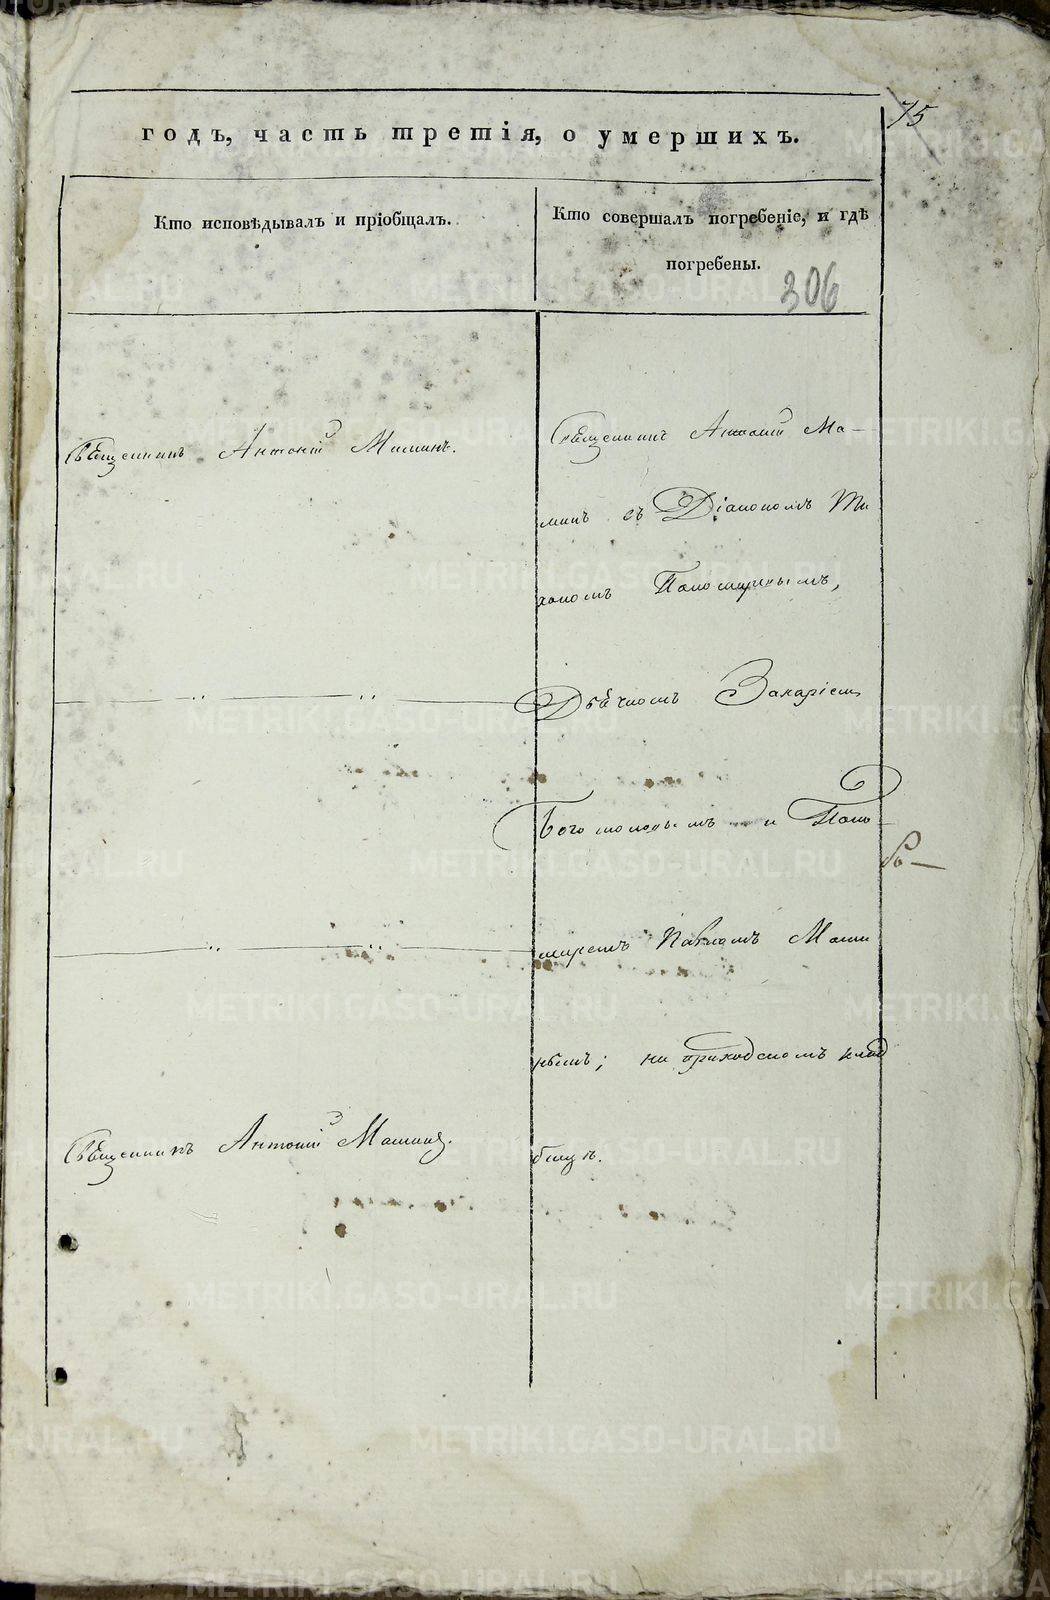 75
годъ, часть третія, о умершихъ.
Кто исповѣдывалъ и пріобщалъ.
Кто совершалъ погребеніе, и гдѣ
погребены.
306
Священникъ Антоній Маминъ.
Священникъ Антоній Ма-
минъ съ Діакономъ Ти
хономъ Пономаревымъ,
Дьячкомъ Захаріемъ
Богомоловымъ и Поно
маремъ Павломъ Мами
нымъ; на приходскомъ клад
бищѣ.
Священникъ Антоній Маминъ.
METRIKI.GASO-URAL.RU